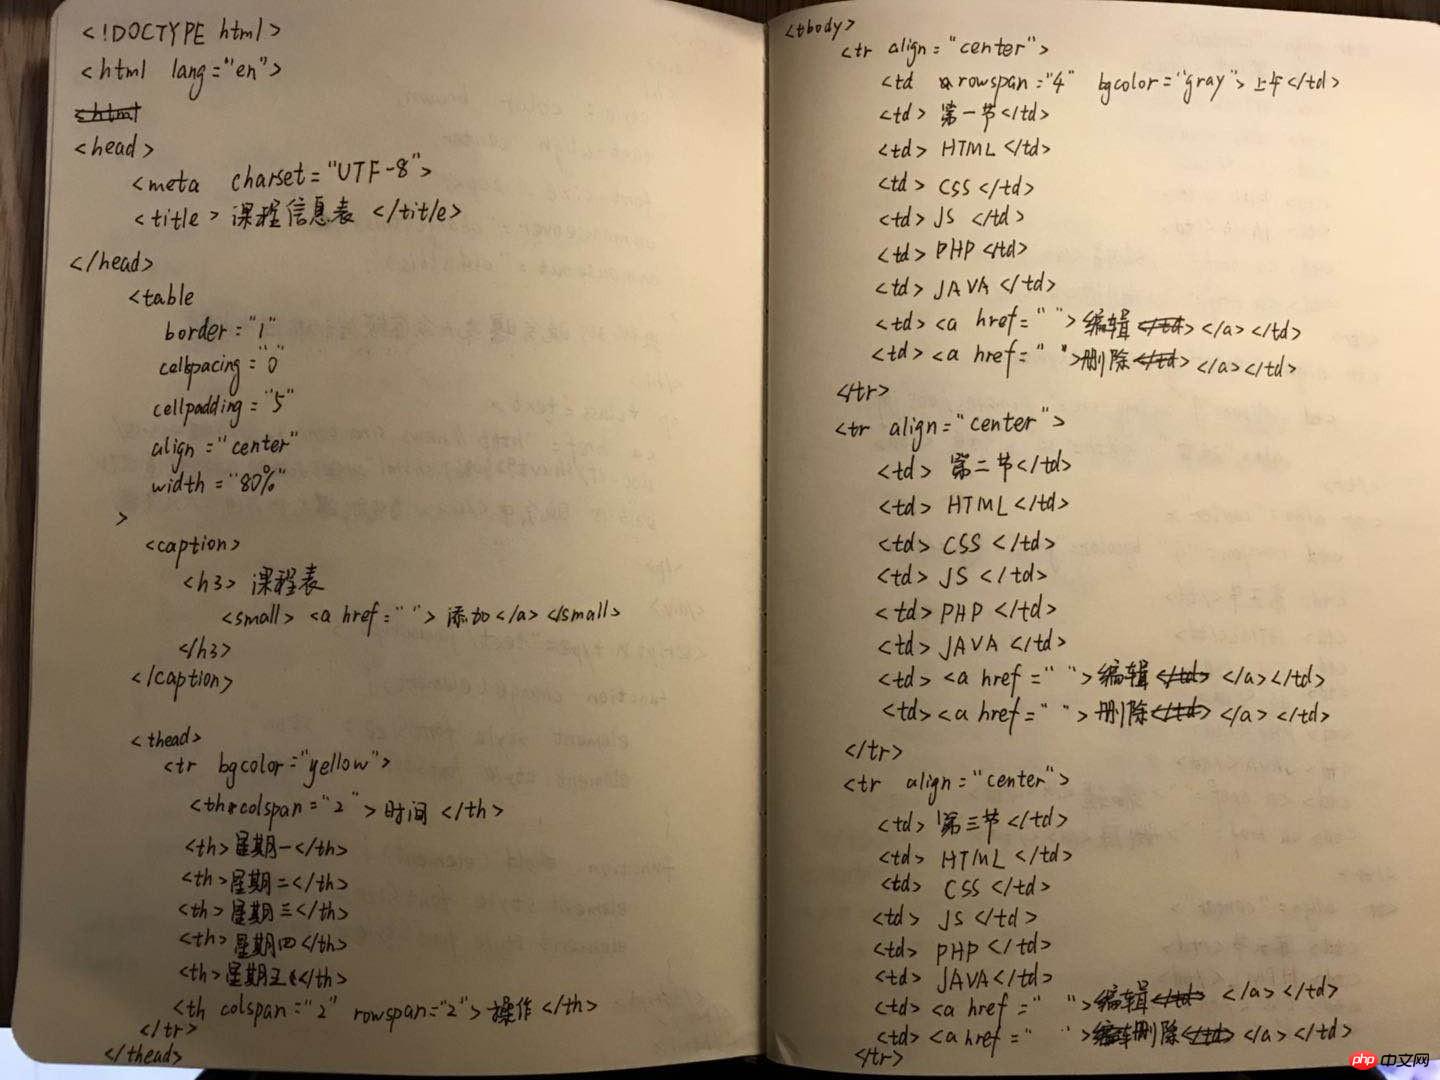 <!DOCTYPE html>
<html lang="en">
<html
<head>
<meta charset="UTF-8">
<title> 课程信息表 </title>
</head>
<table
border="1"
cellspacing="0"
cellpadding="5"
align="center"
width="80%"
>
<caption>
<h3> 课程表
<small> <a href=" "> 添加</a> </small>
</h3>
</caption>
<thead>
<tr bgcolor="yellow">
<th colspan="2">时间 </th>
<th>星期一</th>
<th>星期二</th>
<th>星期三</th>
<th>星期四</th>
<th>星期五</th>
<th colspan="2" rowspan="2">操作</th>
</tr>
</thead>
<tbody>
<tr align="center">
<td rowspan="4" bgcolor="gray">上午</td>
<td> 第一节</td>
<td> HTML </td>
<td> CSS </td>
<td> JS </td>
<td> PHP </td>
<td> JAVA </td>
<td> <a href=" ">编辑</td></a></td>
<td> <a href=" ">删除</td></a></td>
</tr>
<tr align="center">
<td> 第二节</td>
<td> HTML </td>
<td> CSS </td>
<td> JS </td>
<td> PHP </td>
<td> JAVA </td>
<td> <a href=" ">编辑</td></a></td>
<td> <a href=" ">删除</td></a></td>
</tr>
<tr align="center">
<td> 第三节 </td>
<td> HTML </td>
<td> CSS </td>
<td> JS </td>
<td> PHP </td>
<td> JAVA</td>
<td> <a href=" ">编辑</td></a></td>
<td> <a href=" ">删除</td></a></td>
</tr>
php 中文网